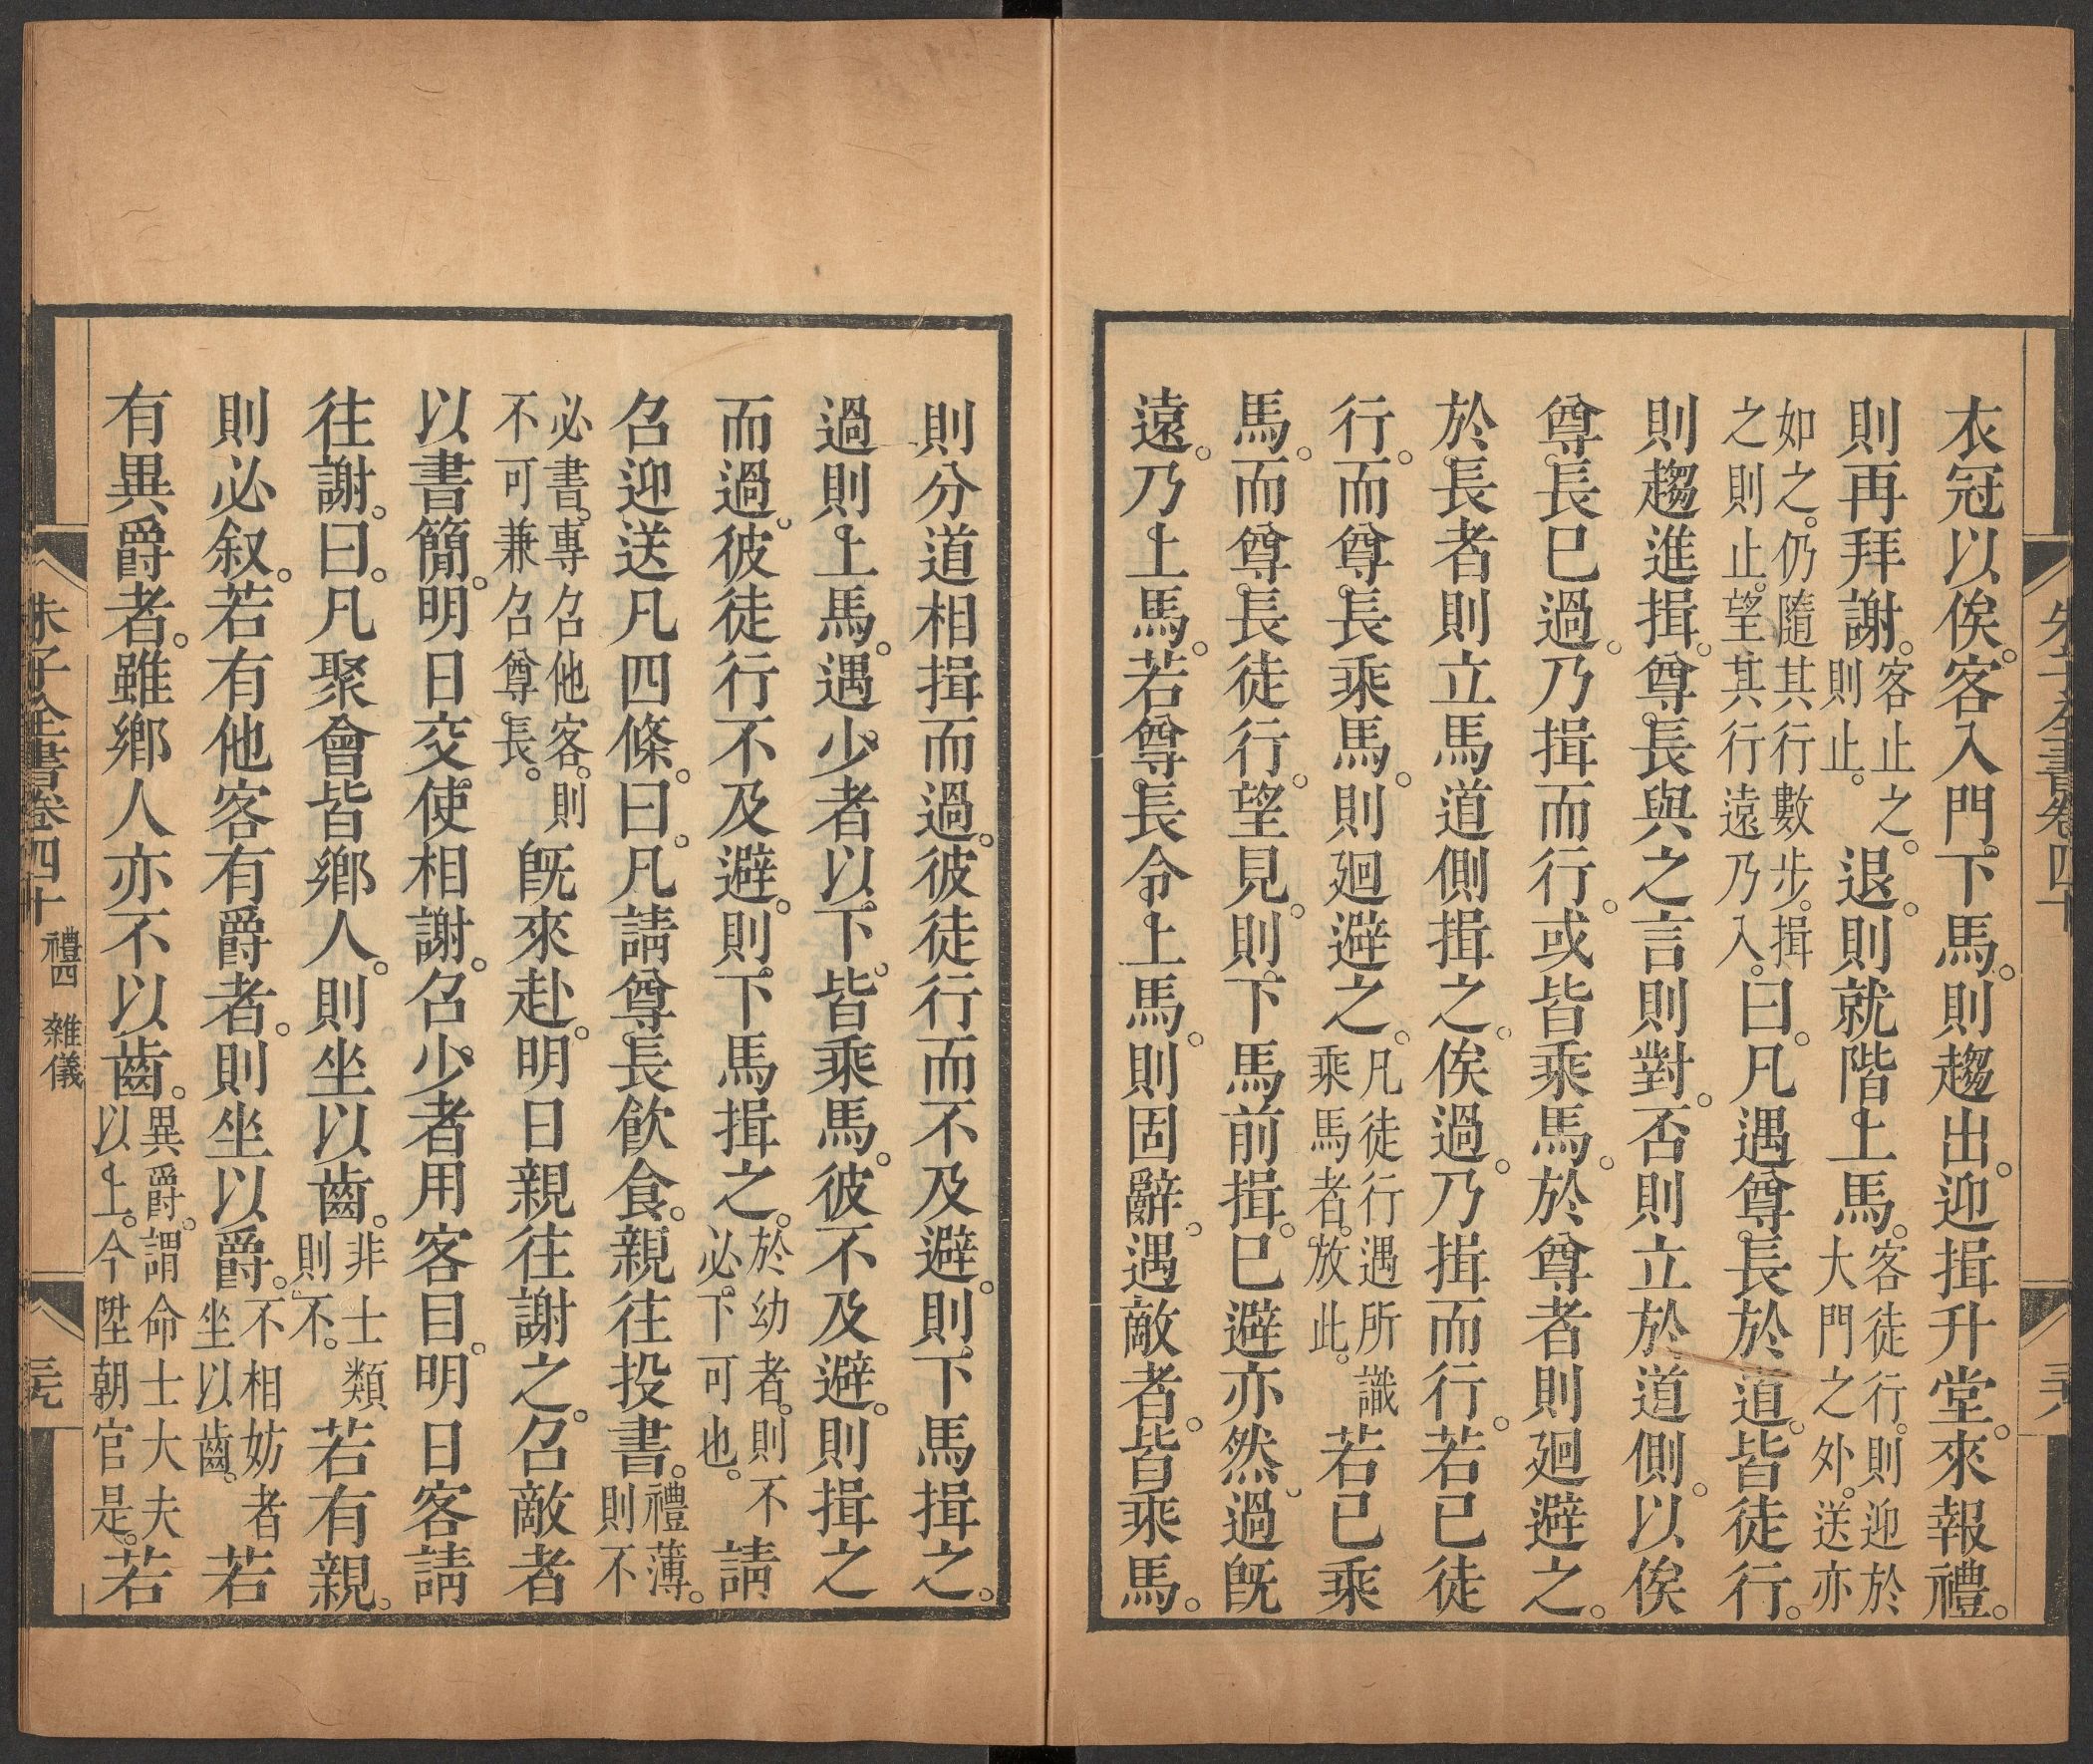 朱子全書卷四十
衣冠以俟。客入門下馬。則趨出。迎揖升堂。來報禮。
則再拜謝。客止之。則止。退。則就階上馬。客徒行。則迎於大門之外。送亦
如之。仍隨其行數步。揖之則止。望其行遠乃入。曰。凡遇尊長於道。皆徒行。
則趨進揖。尊長與之言則對。否則立於道側。以俟
尊長已過。乃揖而行。或皆乘馬。於尊者則廻避之。
於長者則立馬道側揖之。俟過。乃揖而行。若已徒
行。而尊長乘馬。則廻避之。凡徒行遇所識乘馬者。放此。若已乘
馬。而尊長徒行。望見。則下馬前揖。已避亦然。過旣
遠。乃上馬。若尊長令上馬。則固辭。遇敵者。皆乘馬。
則分道相揖而過。彼徒行而不及避。則下馬揖之。
過則上馬。遇少者以下。皆乘馬。彼不及避。則揖之
而過。彼徒行不及避。則下馬揖之。於幼者。則不必下可也。請
召迎送凡四條。曰。凡請尊長飮食。親往投書。禮薄。則不
必書。專召他客。則不可兼召尊長。旣來赴。明日親往謝之。召敵者
以書簡。明日交使相謝。召少者用客目。明日客請
往謝。曰。凡聚會皆鄉人。則坐以齒。非士類則不。若有親。
則必叙。若有他客有爵者。則坐以爵。不相妨者坐以齒。若
有異爵者。雖鄉人亦不以齒。異爵。謂命士大夫以上。今陞朝官是。若
朱子全書卷四十 禮四 雜儀